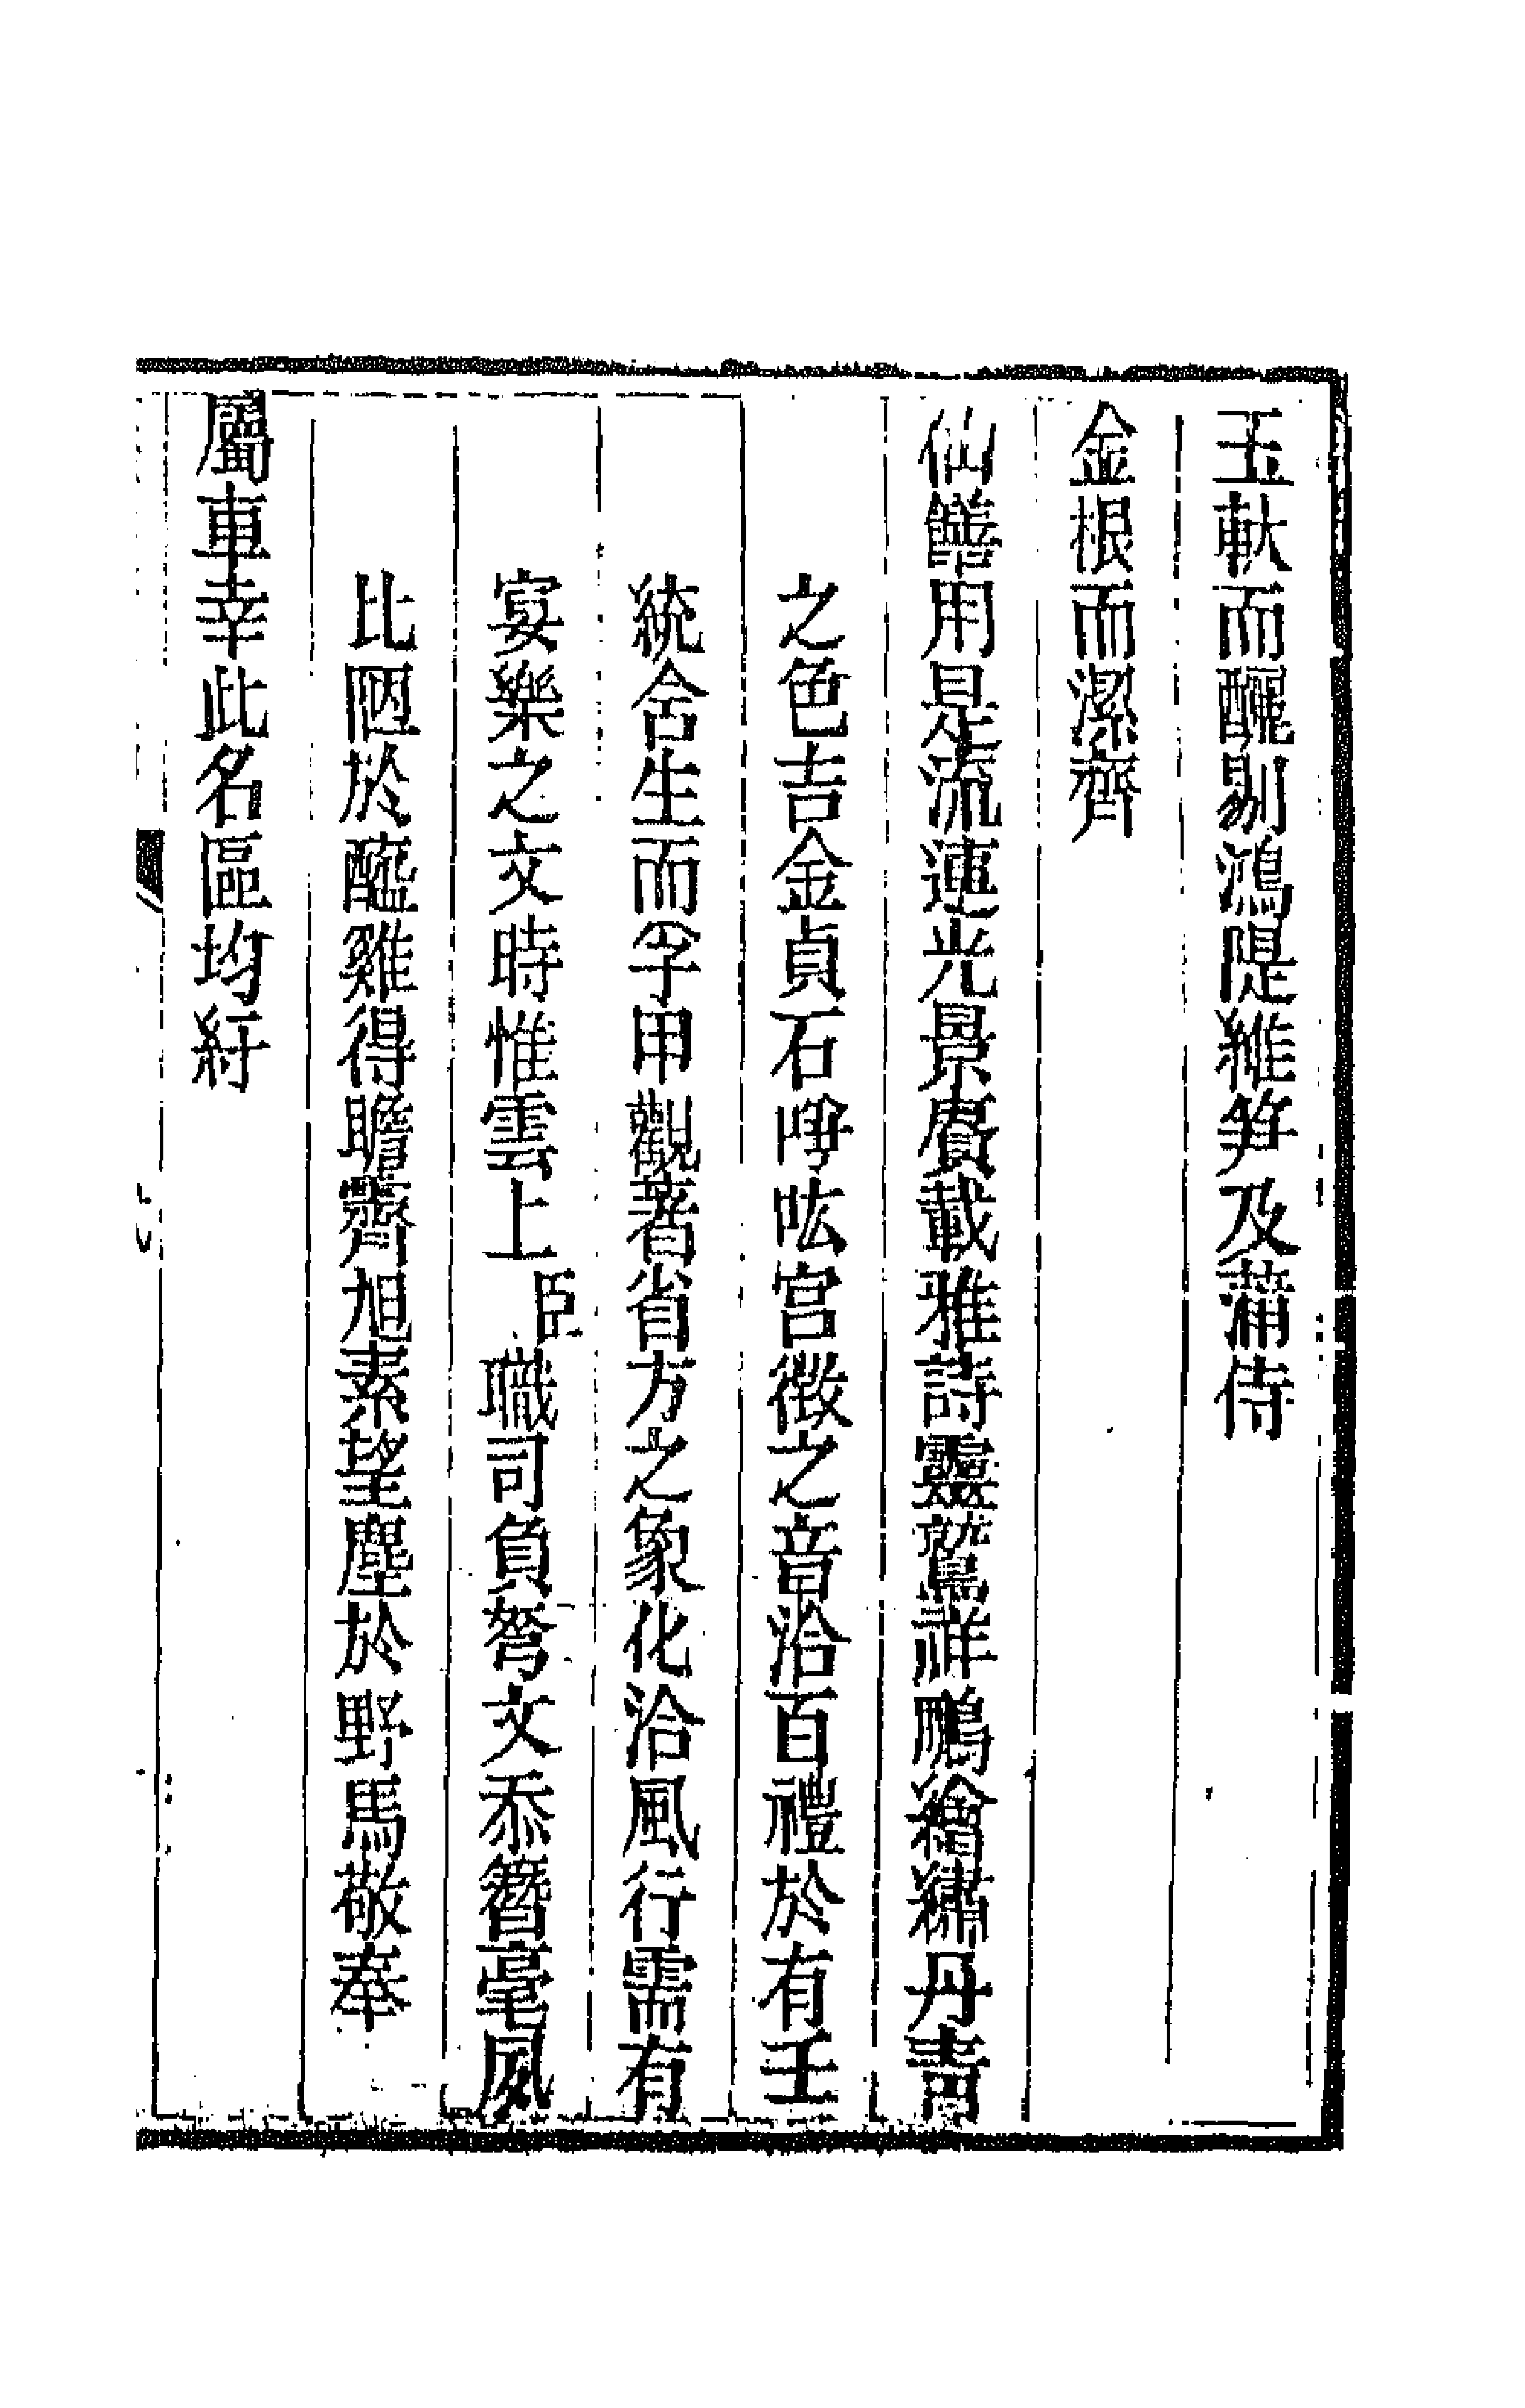 玉軑而釃剔鴻隄維笋及蒲侍
金根而潔齊
仙饍用是流連光景賡載雅詩靈鷲祥鵬繪繡丹青
之色吉金貞石呼吰宮徵之音洽百禮於有壬
統含生而孚甲觀著省方之象化洽風行需有
宴樂之文時惟雲上臣職司負弩文忝簪毫夙
比陋於醯雞得瞻霽旭素望塵於野馬敬奉
屬車幸此名區均紆